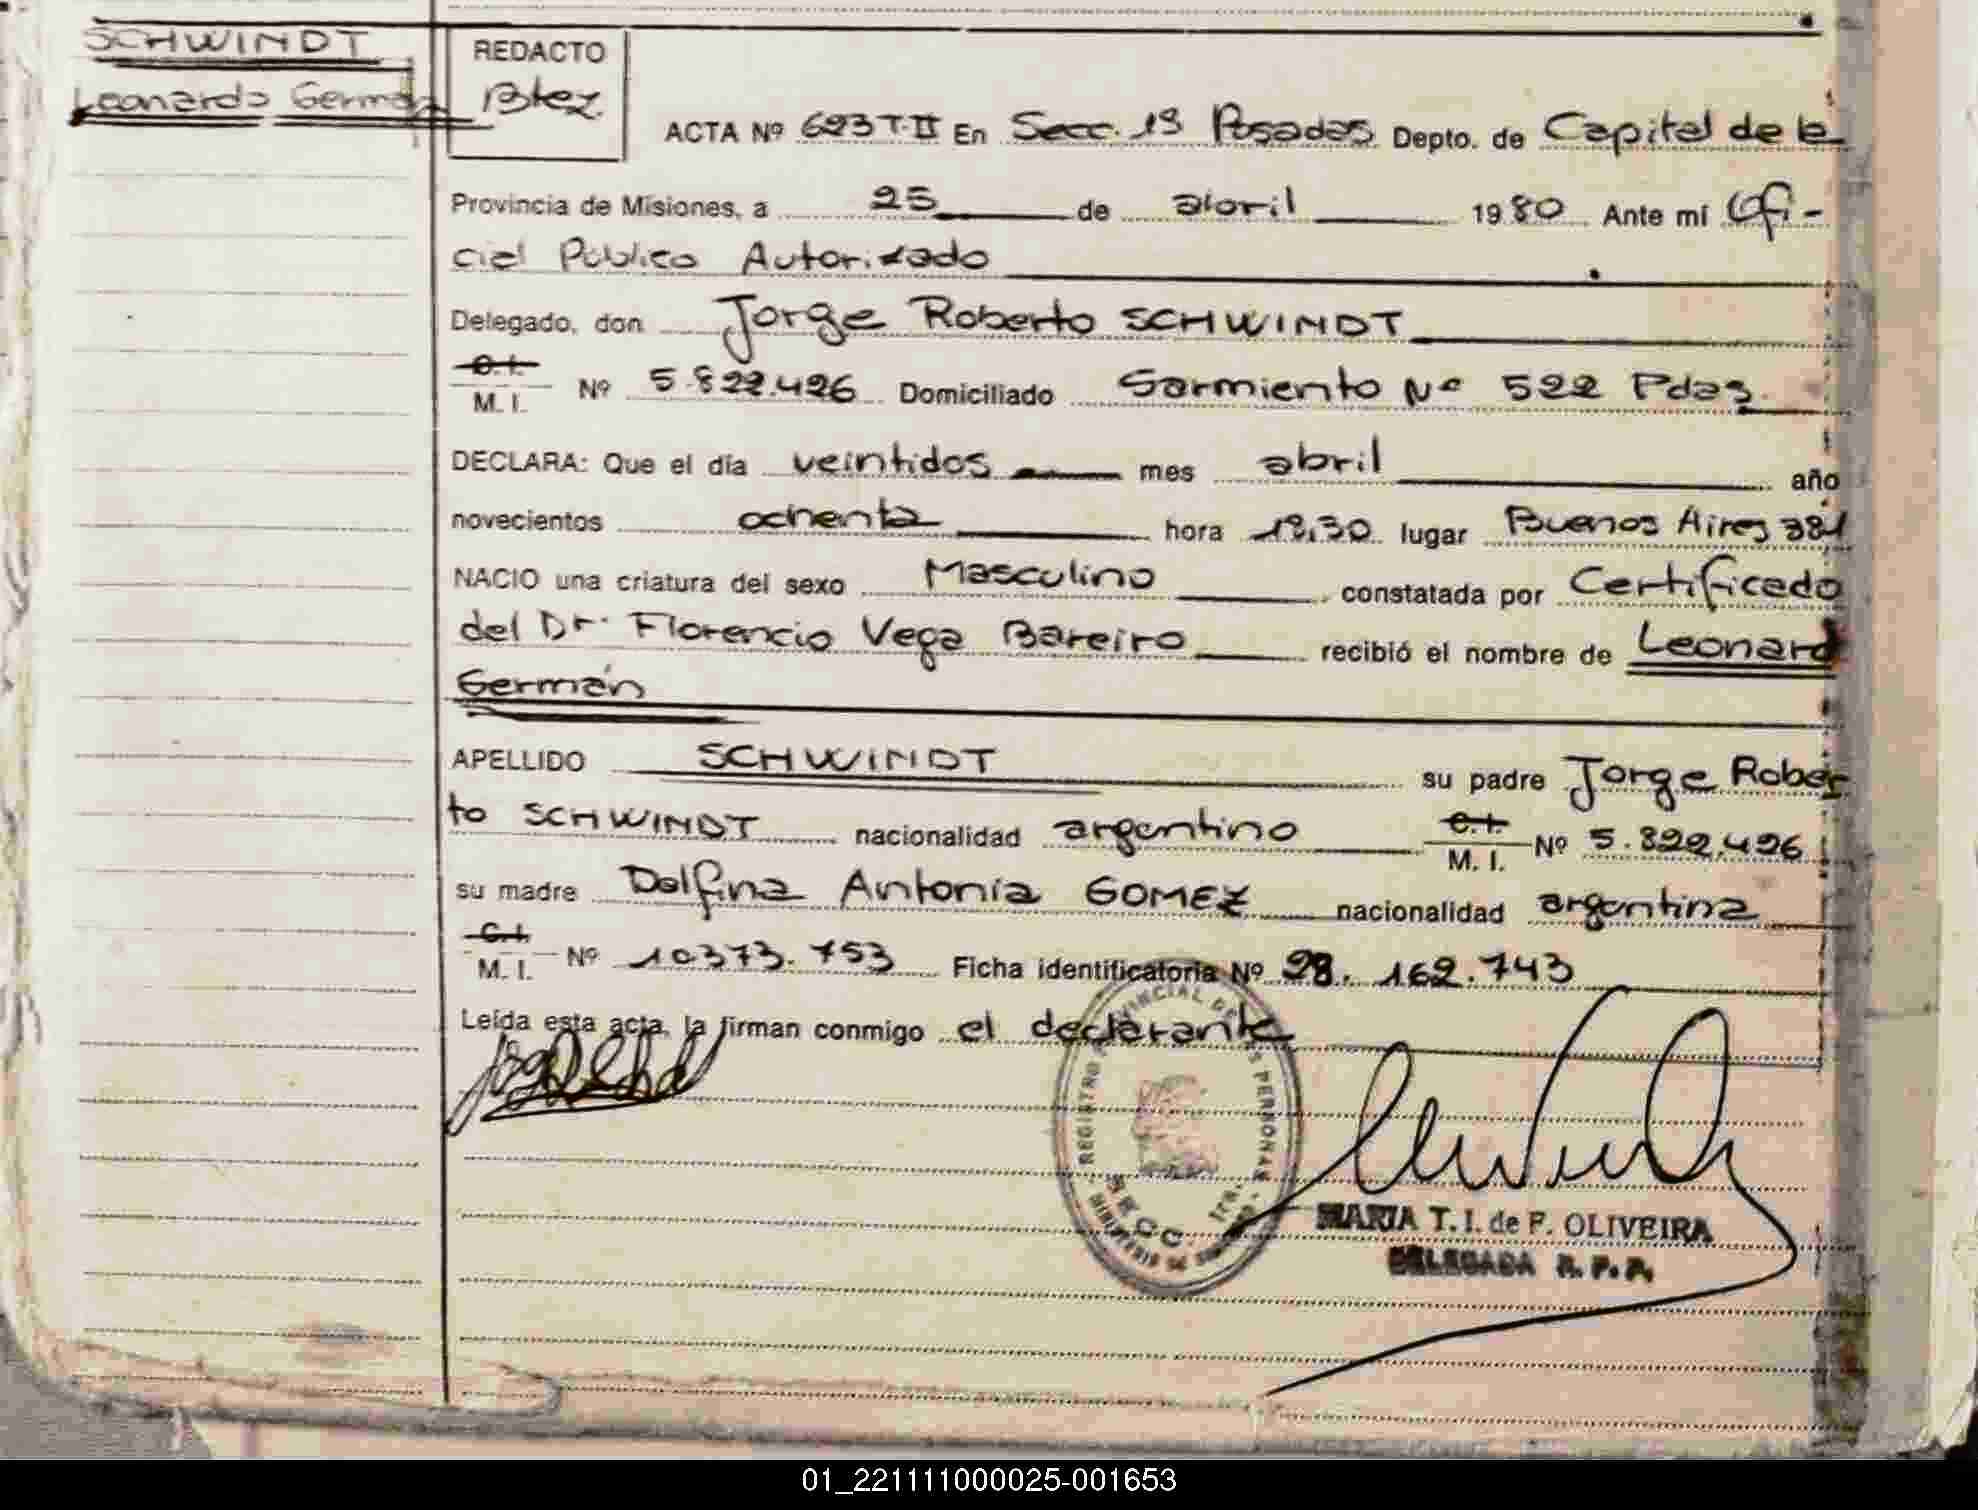 SCHWINDT
Leonardo Germán
REDACTO
Btez.
ACTA Nº 623 T-II En Secc. 1ª Posadas Depto. de Capital de la
Provincia de Misiones, a 25 de abril 1980 Ante mí Ofi-
cial Público Autorizado
Delegado, don Jorge Roberto SCHWINDT
C.I.
M. I. Nº 5.822.426 Domiciliado Sarmiento Nº 522 Pdas
DECLARA: Que el día veintidos mes abril año
novecientos ochenta hora 19,30 lugar Buenos Aires 381
NACIO una criatura del sexo Masculino constatada por Certificado
del Dr. Florencio Vega Bareiro recibió el nombre de Leonard
Germán
APELLIDO SCHWINDT su padre Jorge Rober
to SCHWINDT nacionalidad argentino C.I. M. I. Nº 5.822.426
su madre Delfina Antonia GOMEZ nacionalidad argentina
C.I.
M. I. Nº 10373.753 Ficha identificatoria Nº 28.162.743
Leída esta acta, la firman conmigo el declarante
REGISTRO PROVINCIAL DE LAS PERSONAS
SECC. 1ra.
MINISTERIO DE
MARIA T. I. de F. OLIVEIRA
DELEGADA R. P. P.
01_221111000025-001653